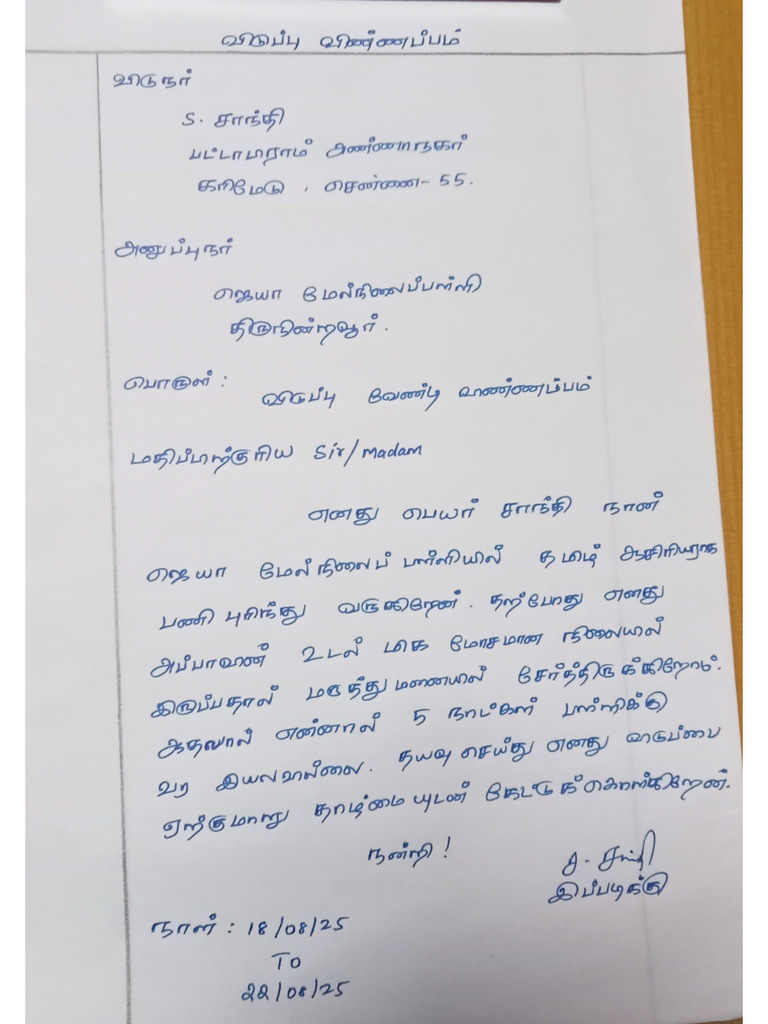 விடுப்பு விண்ணப்பம்
விடுநர்
S. சாந்தி
பட்டாபிராம் அண்ணாநகர்
கரிமேடு, சென்னை - 55.
அனுப்புநர்
ஜெயா மேல்நிலைப்பள்ளி
திருநின்றவூர்.
பொருள் :
விடுப்பு வேண்டி விண்ணப்பம்
மதிப்பிற்குரிய Sir/madam
எனது பெயர் சாந்தி நான்
ஜெயா மேல்நிலைப் பள்ளியில் தமிழ் ஆசிரியராக
பணி புரிந்து வருகிறேன். தற்போது எனது
அப்பாவின் உடல் மிக மோசமான நிலையில்
இருப்பதால் மருத்துமனையில் சேர்த்திருக்கிறோம்.
ஆதலால் என்னால் 5 நாட்கள் பள்ளிக்கு
வர இயலவில்லை. தயவு செய்து எனது விடுப்பை
ஏற்குமாறு தாழ்மையுடன் கேட்டுக் கொள்கிறேன்.
நன்றி!
ச. சாந்தி
இப்படிக்கு
நாள் : 18/08/25
To
22/08/25